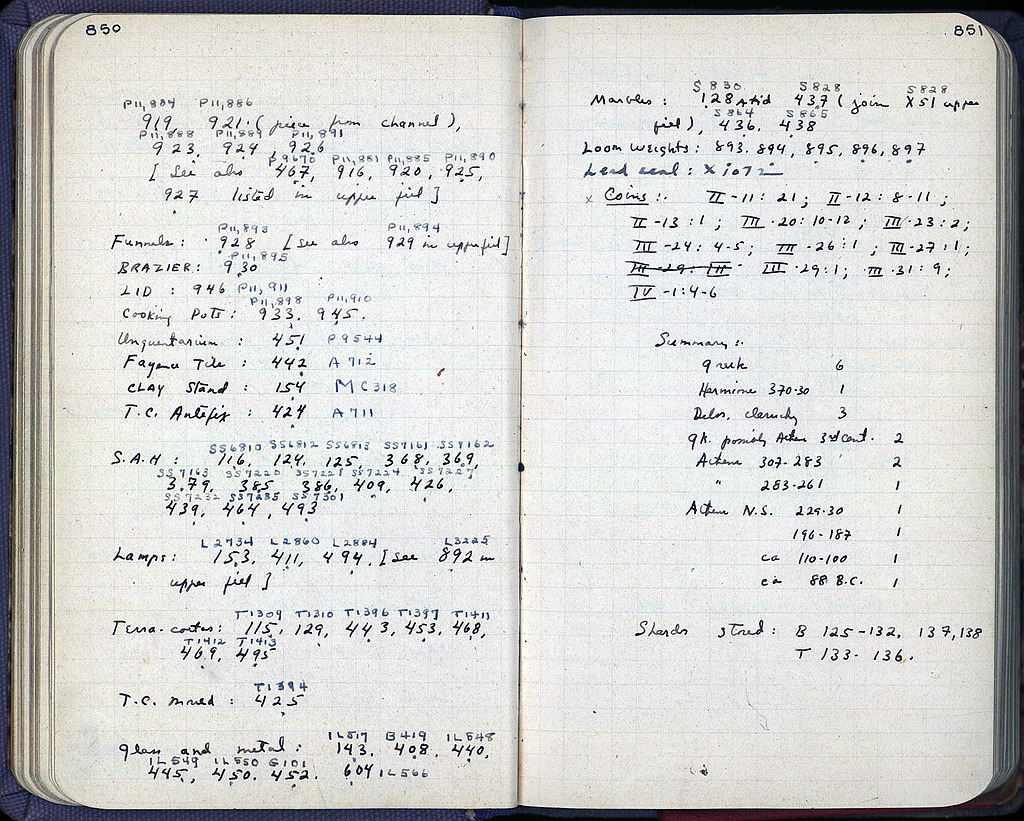 850
P11,884 P11,886
919, 921. (piece from channel),
P11,888 P11,889 P11,891
923, 924, 926
P9670 P11,881 P11,885 P11,890
[See also 467, 916, 920, 925,
927 listed in upper fill]
P11,893 P11,894
Funnels: 928 [See also 929 in upper fill]
P11,895
BRAZIER: 930
LID : 946 P11,911
P11,898 P11,910
Cooking Pots: 933, 945.
Unguentarium : 451 P9544
Fayence Tile : 442 A 712
CLAY Stand : 154 MC318
T.C. Antefix : 424 A711
SS6810 SS6812 SS6813 SS7161 SS7162
S.A.H : 116, 124, 125, 368, 369,
SS7163 SS7220 SS7221 SS7224 SS7227
379, 385, 386, 409, 426,
SS7232 SS7285 SS7301
439, 464, 493
L2734 L2860 L2884 L3225
Lamps: 153, 411, 494, [See 892 in
upper fill]
T1309 T1310 T1396 T1397 T1411
Terra-cottas: 115, 129, 443, 453, 468,
T1412 T1413
469, 495
T1394
T.C. mould : 425
IL517 B419 IL548
Glass and metal : 143, 408, 440,
IL549 IL550 G101
445, 450, 452. 604 IL566
851
S830 S828 S828
Marbles : 128 A+d 437 (join X51 upper
S864 S865
fill), 436, 438
Loom Weights: 893, 894, 895, 896, 897
Lead seal : X 1072
x Coins :. II-11: 21; II-12: 8-11;
II-13: 1; III-20: 10-12; III-23: 2;
III-24: 4-5; III-26: 1; III-27: 1;
III-29: III III-29: 1; III-31: 9;
IV-1: 4-6
Summary :.
Greek 6
Hermione 370-30 1
Delos, cleruchy 3
Gk. possibly Athens 3rd cent. 2
Athens 307-283 2
" 283-261 1
Athens N.S. 229-30 1
196-187 1
ca 110-100 1
ca 88 B.C. 1
Sherds stored: B 125-132, 137,138
T 133-136.